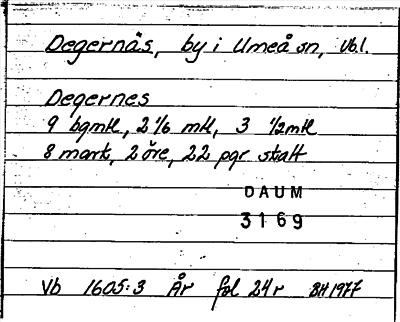 Degernäs, by i Umeå sn, Vb.l.
Degernes
9 bgmk, 2 1/6 mk, 3 1/2mk
8 mark, 2 öre, 22 pgr skatt
DAUM
3169
Vb 1605:3 År fol 24r BH 1977